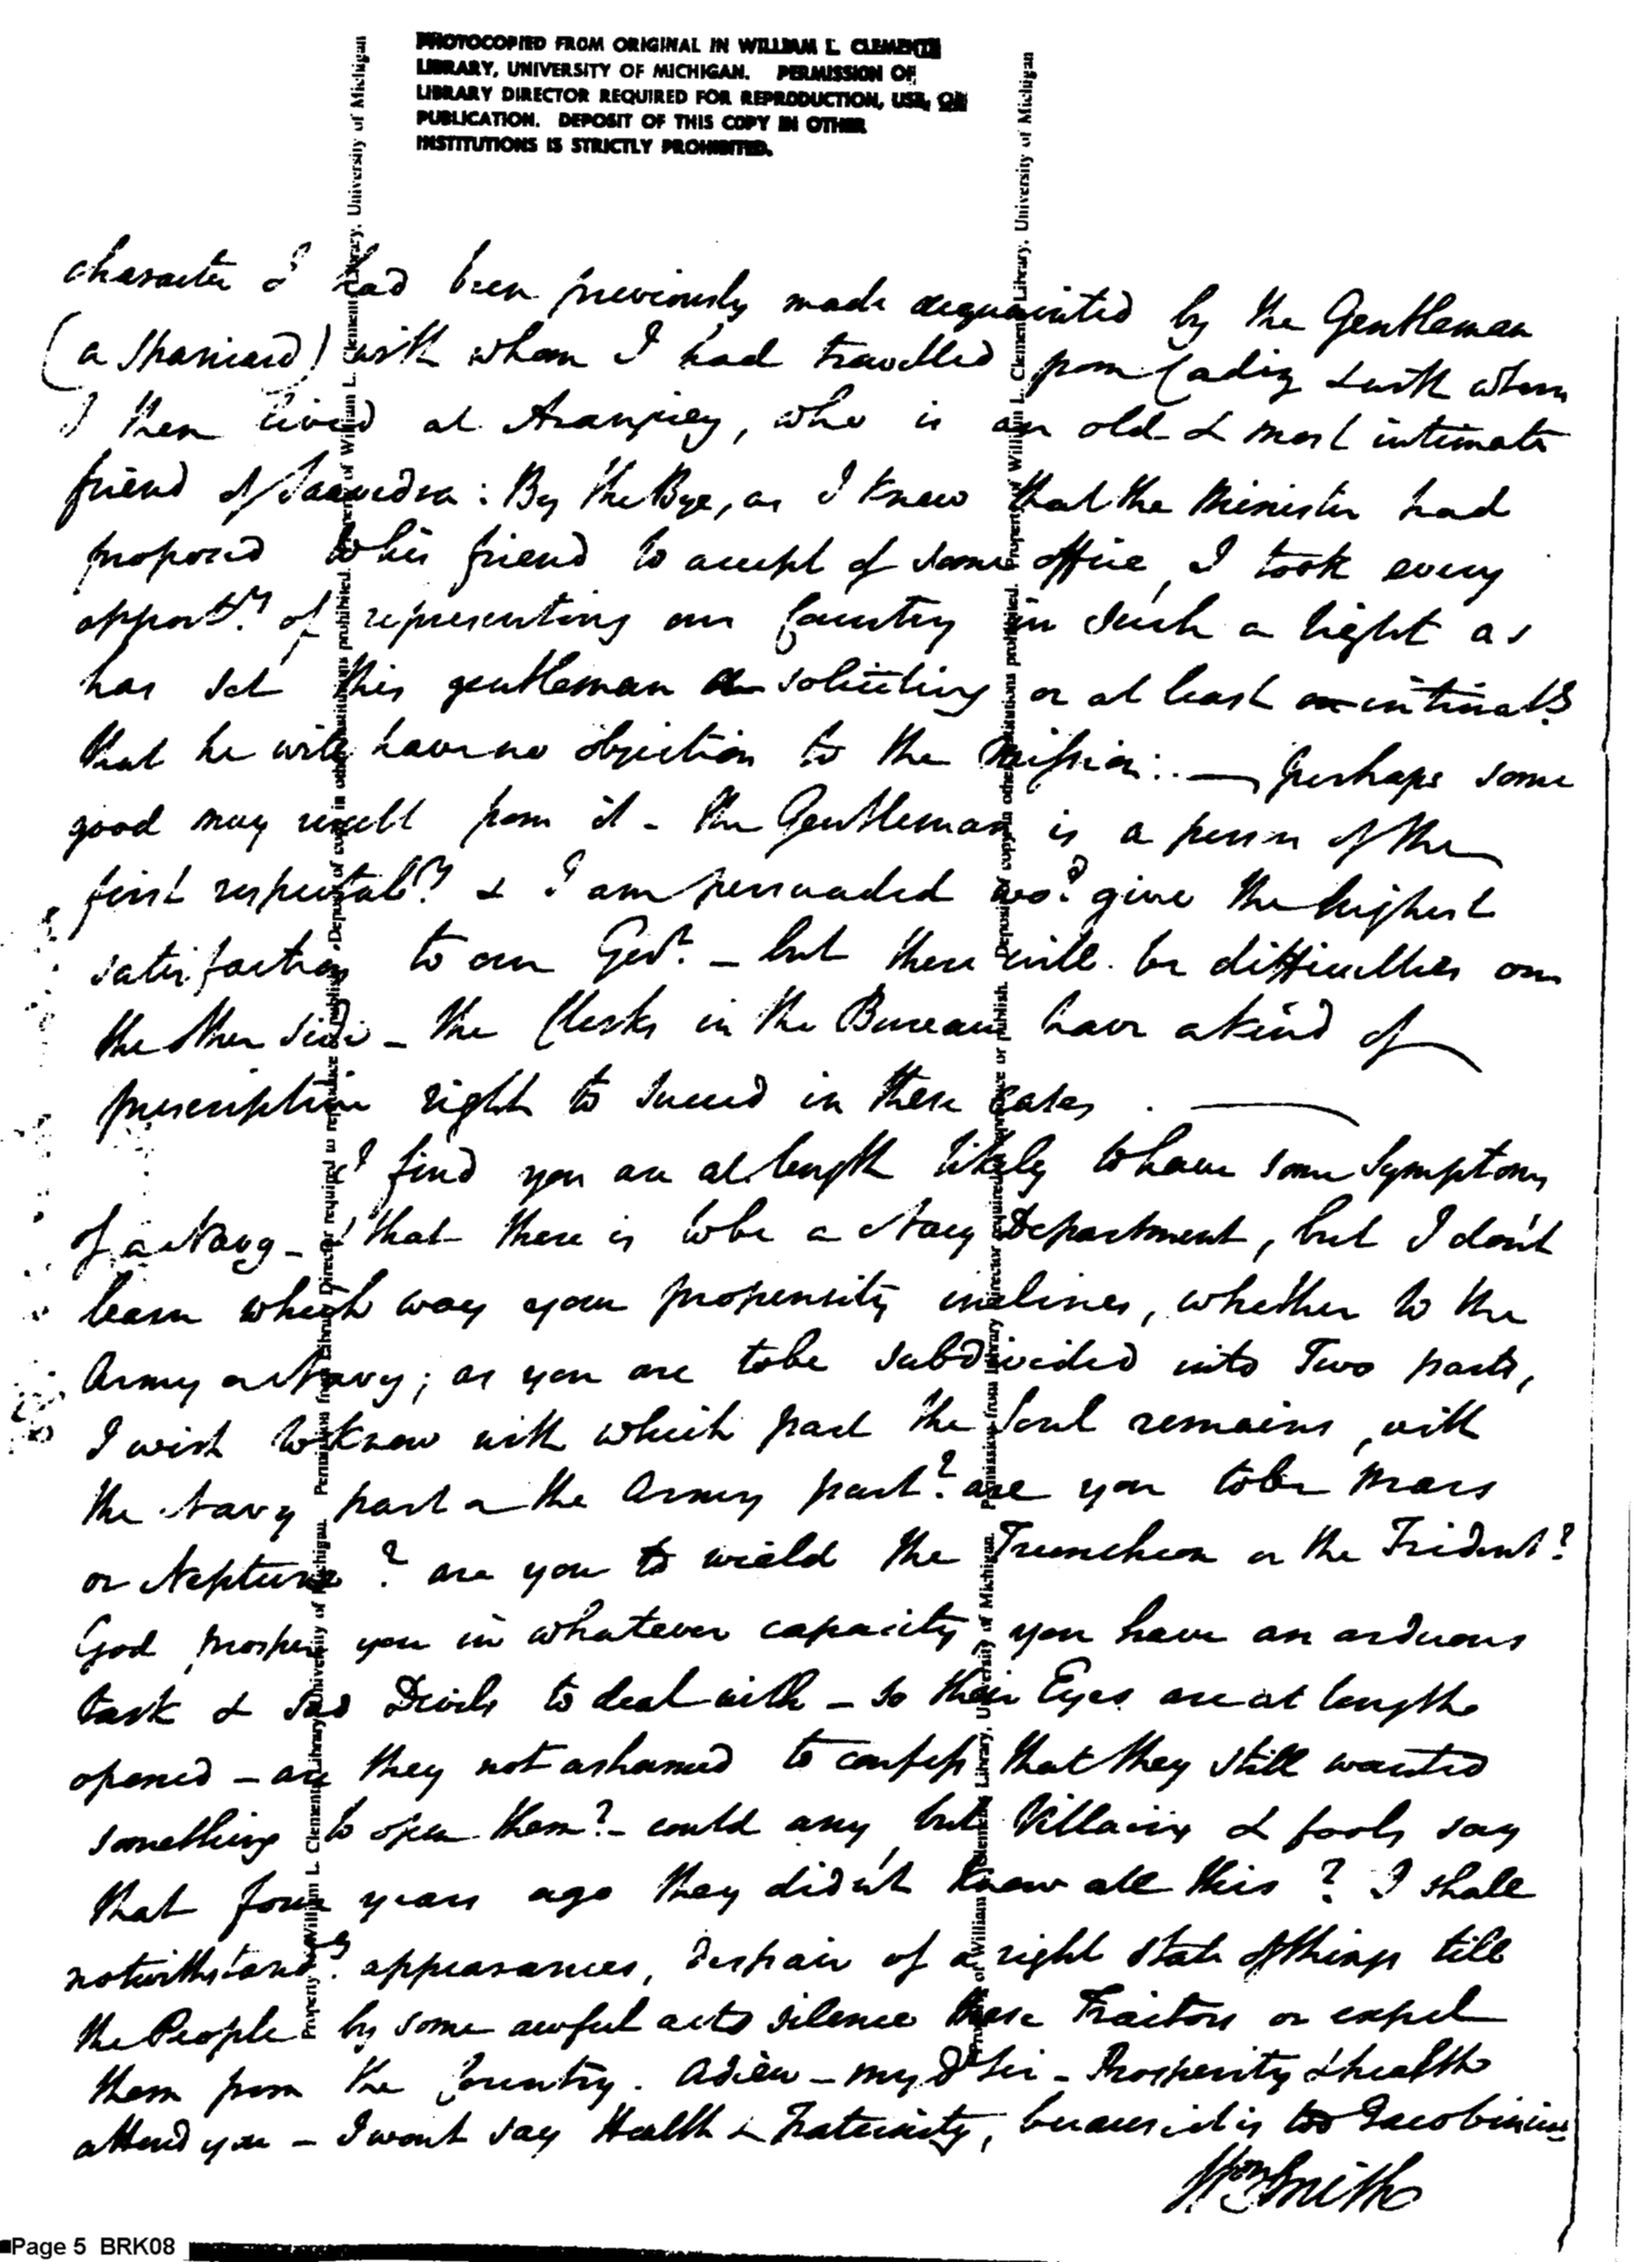 PHOTOCOPIED FROM ORIGINAL IN WILLIAM L. CLEMENTS
LIBRARY, UNIVERSITY OF MICHIGAN. PERMISSION OF
LIBRARY DIRECTOR REQUIRED FOR REPRODUCTION, USE, OR
PUBLICATION. DEPOSIT OF THIS COPY IN OTHER
INSTITUTIONS IS STRICTLY PROHIBITED.
character I had been previously made acquainted by the Gentleman
(a Spaniard) with whom I had travelled from Cadiz & with whom
I then lived at Aranjuez, who is an old & most intimate
friend of Saavedra: By the Bye, as I knew that the Minister had
proposed to his friend to accept of some office, I took every
opport.ty of representing our Country in such a light as
has set this gentleman a soliciting or at least an intimat.g
that he will have no objection to the Mission: — perhaps some
good may result from it - the Gentleman is a person of the
first respectab.ty & I am persuaded wo.d give the highest
satisfaction to our Gov.t — but there will be difficulties on
the other side — the Clerks in the Bureau have a kind of
prescriptive right to succeed in these cases. —
I find you are at length likely to have some symptoms
of a Navy — & that there is to be a Navy Department, but I don't
learn which way your propensity inclines, whether to the
Army or Navy; as you are to be subdivided into Two parts,
I wish to know with which part the Soul remains, with
the Navy part or the Army part? are you to be Mars
or Neptune? are you to wield the Truncheon or the Trident?
God prosper you in whatever capacity you have an arduous
task & sad Devils to deal with — so their Eyes are at length
opened — are they not ashamed to confess that they still wanted
something to open them? — could any but Villains & fools say
that four years ago they didn't know all this? I shall
notwithstand.g appearances, despair of a right state of things till
the People by some awful acts silence these Traitors or expel
them from the Country. Adieu — my Dr Sir — Prosperity & health
attend you — I wont say Health & Fraternity, because it is too Jacobinical
Wm Smith
Property of William L. Clements Library, University of Michigan. Permission from Library Director required to reproduce or publish. Deposit of copy in other institutions prohibited. Property of William L. Clements Library, University of Michigan
Property of William L. Clements Library, University of Michigan. Permission from Library Director required to reproduce or publish. Deposit of copy in other institutions prohibited. Property of William L. Clements Library, University of Michigan
Page 5 BRK08